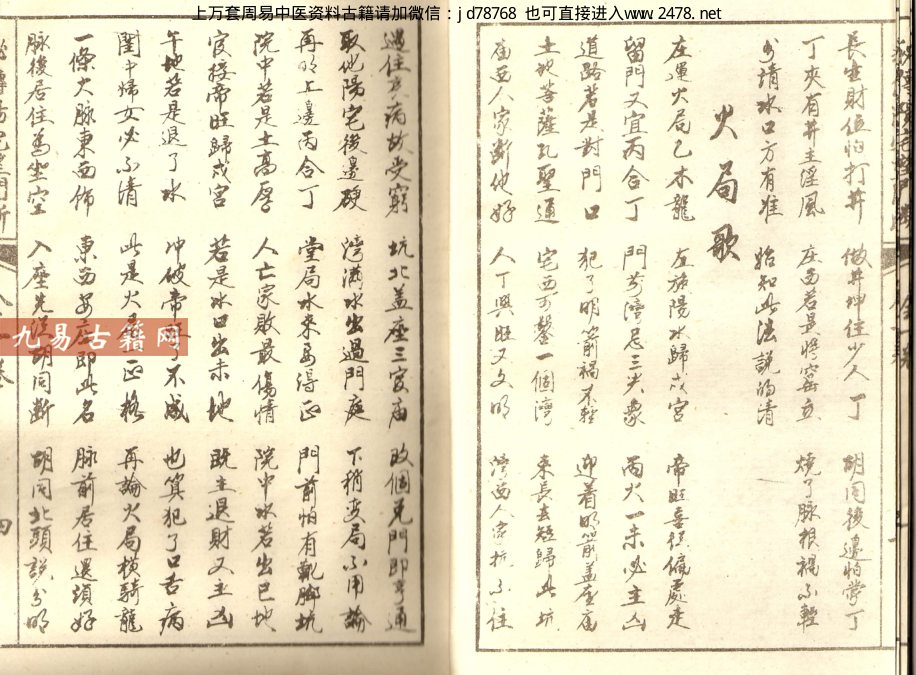 上万套周易中医资料古籍请加微信：jd78768 也可直接进入www.2478.net
长生财位怕打井 做井坤住少人丁 胡同后边怕掌丁
丁夹有井主淫風 庄西若是将窑立 烧了脉根祸不轻
分清水口方有准 始知此法说的清
火局歌
庄運火局乙木龍 左旋陽水歸戍宮 帝旺喜從偏處走
留門又宜丙合丁 門前灣尼三尖象 丙火一来必主凶
道路若是對門口 犯了明箭祸不轻 迎着明箭盖座庙
土地菩薩孔聖通 宅西可鑿一個湾 来長去短歸此坑
庙西人家渐他好 人丁興旺又文明 湾西人家折不住
遇住疾病故受窮 坑北盖座三官庙 改個兑門即亨通
取他陽宅後邊硬 湾满水出過門庭 下稍变局不用論
再明上邊丙合丁 堂局水来為得正 門前怕有靴脚坑
院中若是土高厚 人亡家敗最傷情 院中水若出巳地
官接帝旺歸戍宮 若是水口出未地 既主退財又主凶
午地若是退了水 冲破帝旺了不成 也算犯了口舌病
閨中婦女必不清 此是火局正格 再論火局横騎龍
一條大脉東西飾 東西安座即此名 脉前居住還须好
脉後居住為坐空 入座先從胡同断 胡同北頭説分明
九易古籍网